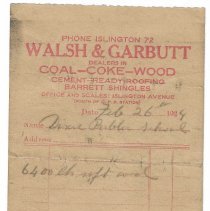 PHONE ISLINGTON 72
WALSH & GARBUTT
DEALERS IN
COAL-COKE-WOOD
CEMENT-READY ROOFING
BARRETT SHINGLES
OFFICE AND SCALES: ISLINGTON AVENUE
(SOUTH OF C.P.R. STATION)
Date Feb 26th 1924
Name Public School
Address
6400 lb soft coal